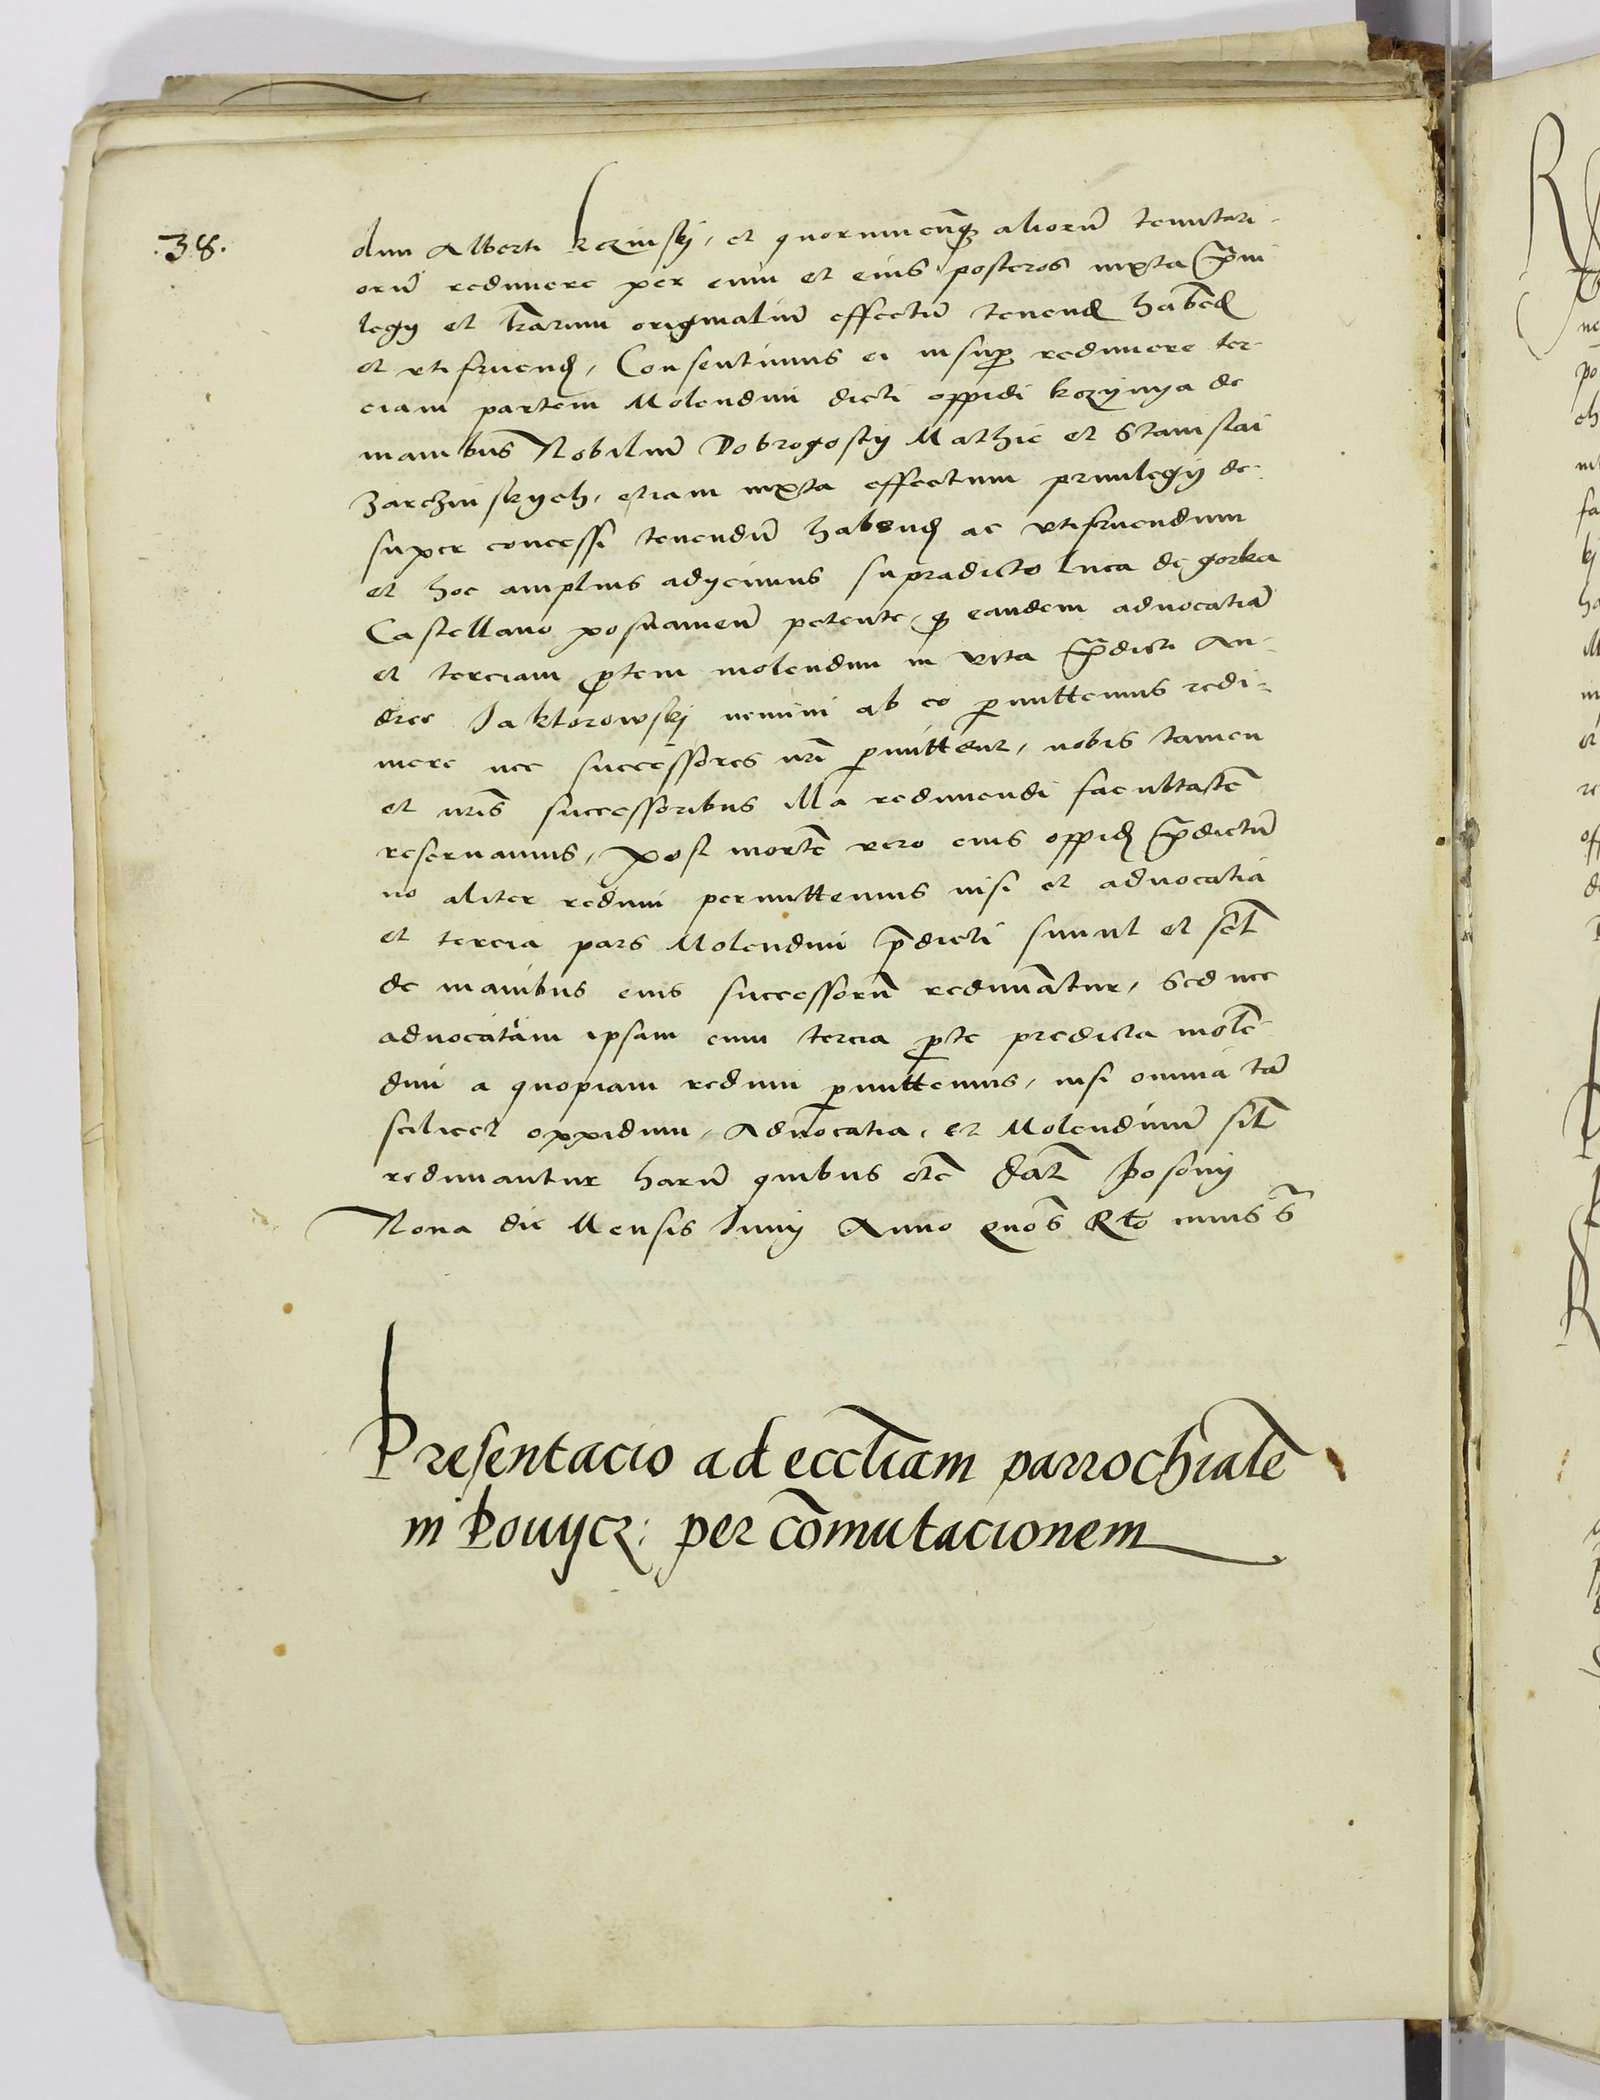 .38.
olim Alberti kczinskj, et quorumcunq aliorum tenutari-
orum redimere per eum et eius posteros iuxta privi
legij et l̃rarum originalium effectum tenend habend
et utifruend, Consentimus ei insup redimere ter-
ciam partem Molendini dicti oppidi kozijnya de
manibus Nobilium Dobrogostij Mathie et Stanislai
Zarczinskych, etiam iuxta effectum privilegij de-
super concessi tenendum habend ac utifruendum
et hoc amplius adycimus supradicto luca de gorka
Castellano posnanień petente, q eandem advocatiam
et terciam ptem molendini in vita p̃dicti An-
dree Jaktorowskj nemini ab eo pmittemus redi-
mere nec successores nr̃i pmittent, nobis tamen
et nr̃is successoribus illa redimendi facultatem
reservamus, post mortem vero eius oppid p̃dictum
no aliter redimi permittemus nisi et advocatia
et tercia pars Molendini p̃dicti simul et sel̃
de manibus eius successorum redimantur, Sed nec
advocatiam ipsam cum tercia pte predicta molen
dini a quopiam redimi pmittemus, nisi omnia tam
scilicet oppidum, Advocatia, et Molendinum sil̃
redimantur harum quibus etc̃ Dat̃ Posonij
Nona die Mensis Junij Anno quos̃
Presentacio ad eccl̃iam parrochialem
in Povycz: per com̃utacionem